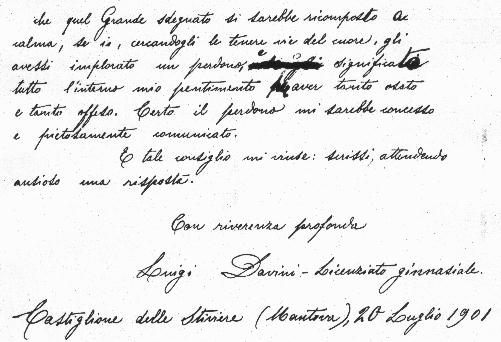 che quel Grande sdegnato si sarebbe ricomposto a
calma, se io, cercandogli le tenere vie del cuore, gli
avessi implorato un perdono, e significato
tutto l'interno mio pentimento aver tanto osato
e tanto offeso. Certo il perdono mi sarebbe concesso
e pietosamente comunicato.
E tale consiglio mi vinse: scrissi, attendendo
ansioso una risposta.
Con riverenza profonda
Luigi Davini - Licenziato ginnasiale.
Castiglione delle Stiviere (Mantova), 20 Luglio 1901